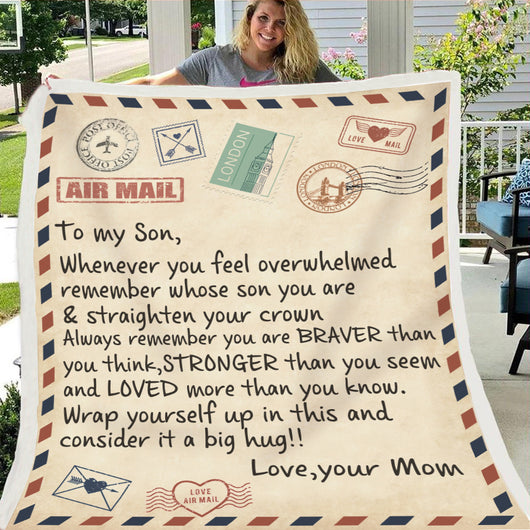 POST OFFICE
POST OFFICE
LONDON
LOVE MAIL
LONDON
LONDON
AIR MAIL
To my Son,
Whenever you feel overwhelmed
remember whose son you are
& straighten your crown
Always remember you are BRAVER than
you think,STRONGER than you seem
and LOVED more than you know.
Wrap yourself up in this and
consider it a big hug!!
Love,your Mom
LOVE
AIR MAIL